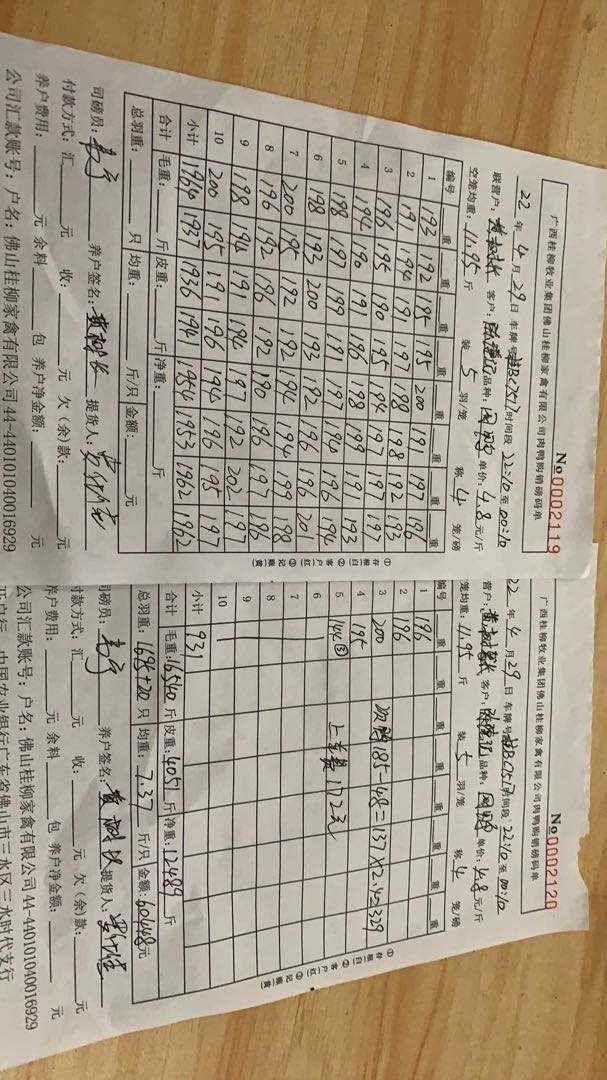 广西桂柳牧业集团佛山桂柳家禽有限公司肉鸭购销磅码单
No 0002119
22 年 4 月 29 日 车牌号 时间段 22:10 至 00:10
联营户: 客户: 品种: 单价: 4.8 元/斤
空笼均重: 11.95 斤 装 5 羽/笼 称 4 笼/磅
编号 重 重 重 重 重 重 重 重
1 193 192 195 195 200 191 197 196
2 191 194 191 197 188 198 192 193
3 196 195 190 195 194 197 197 197
4 194 190 191 196 198 199 191 193
5 198 197 199 191 197 194 196 194
6 198 193 200 193 192 196 196 201
7 200 195 192 192 194 194 199 198
8 196 192 196 192 190 196 197 196
9 198 194 191 194 197 192 202 197
10 200 195 191 196 194 196 195 197
小计 1964 1937 1936 194 1954 1953 1962 1962
合计 毛重: 斤 皮重: 斤 净重: 斤
总羽重: 只 均重: 斤/只 金额: 元
司磅员: 养户签名: 提货人:
付款方式: 汇 元 收: 元 欠(余)款: 元
养户费用: 元 余料 包 养户净金额: 元
公司汇款账号: 户名: 佛山桂柳家禽有限公司 44-440101040016929
①存根(白) ②客户(红) ③记账(黄)
广西桂柳牧业集团佛山桂柳家禽有限公司肉鸭购销磅码单
No 0002120
22 年 4 月 29 日 车牌号 时间段 22:10 至 00:10
营户: 客户: 品种: 单价: 4.8 元/斤
笼均重: 11.95 斤 装 5 羽/笼 称 4 笼/磅
编号 重 重 重 重 重 重 重 重
1 196
2 196
3 200 185-48=137×2.4=329
4 195
5 144③ 上车费172元
6
7
8
9
10
小计 931
合计 毛重: 16540 斤 皮重: 4051 斤 净重: 12489 斤
总羽重: 1695+20 只 均重: 7.37 斤/只 金额: 60448 元
司磅员: 养户签名: 提货人:
付款方式: 汇 元 收: 元 欠(余)款: 元
养户费用: 元 余料 包 养户净金额: 元
公司汇款账号: 户名: 佛山桂柳家禽有限公司 44-440101040016929
开户行: 中国农业银行广东省佛山市三水区三水时代支行
①存根(白) ②客户(红) ③记账(黄)